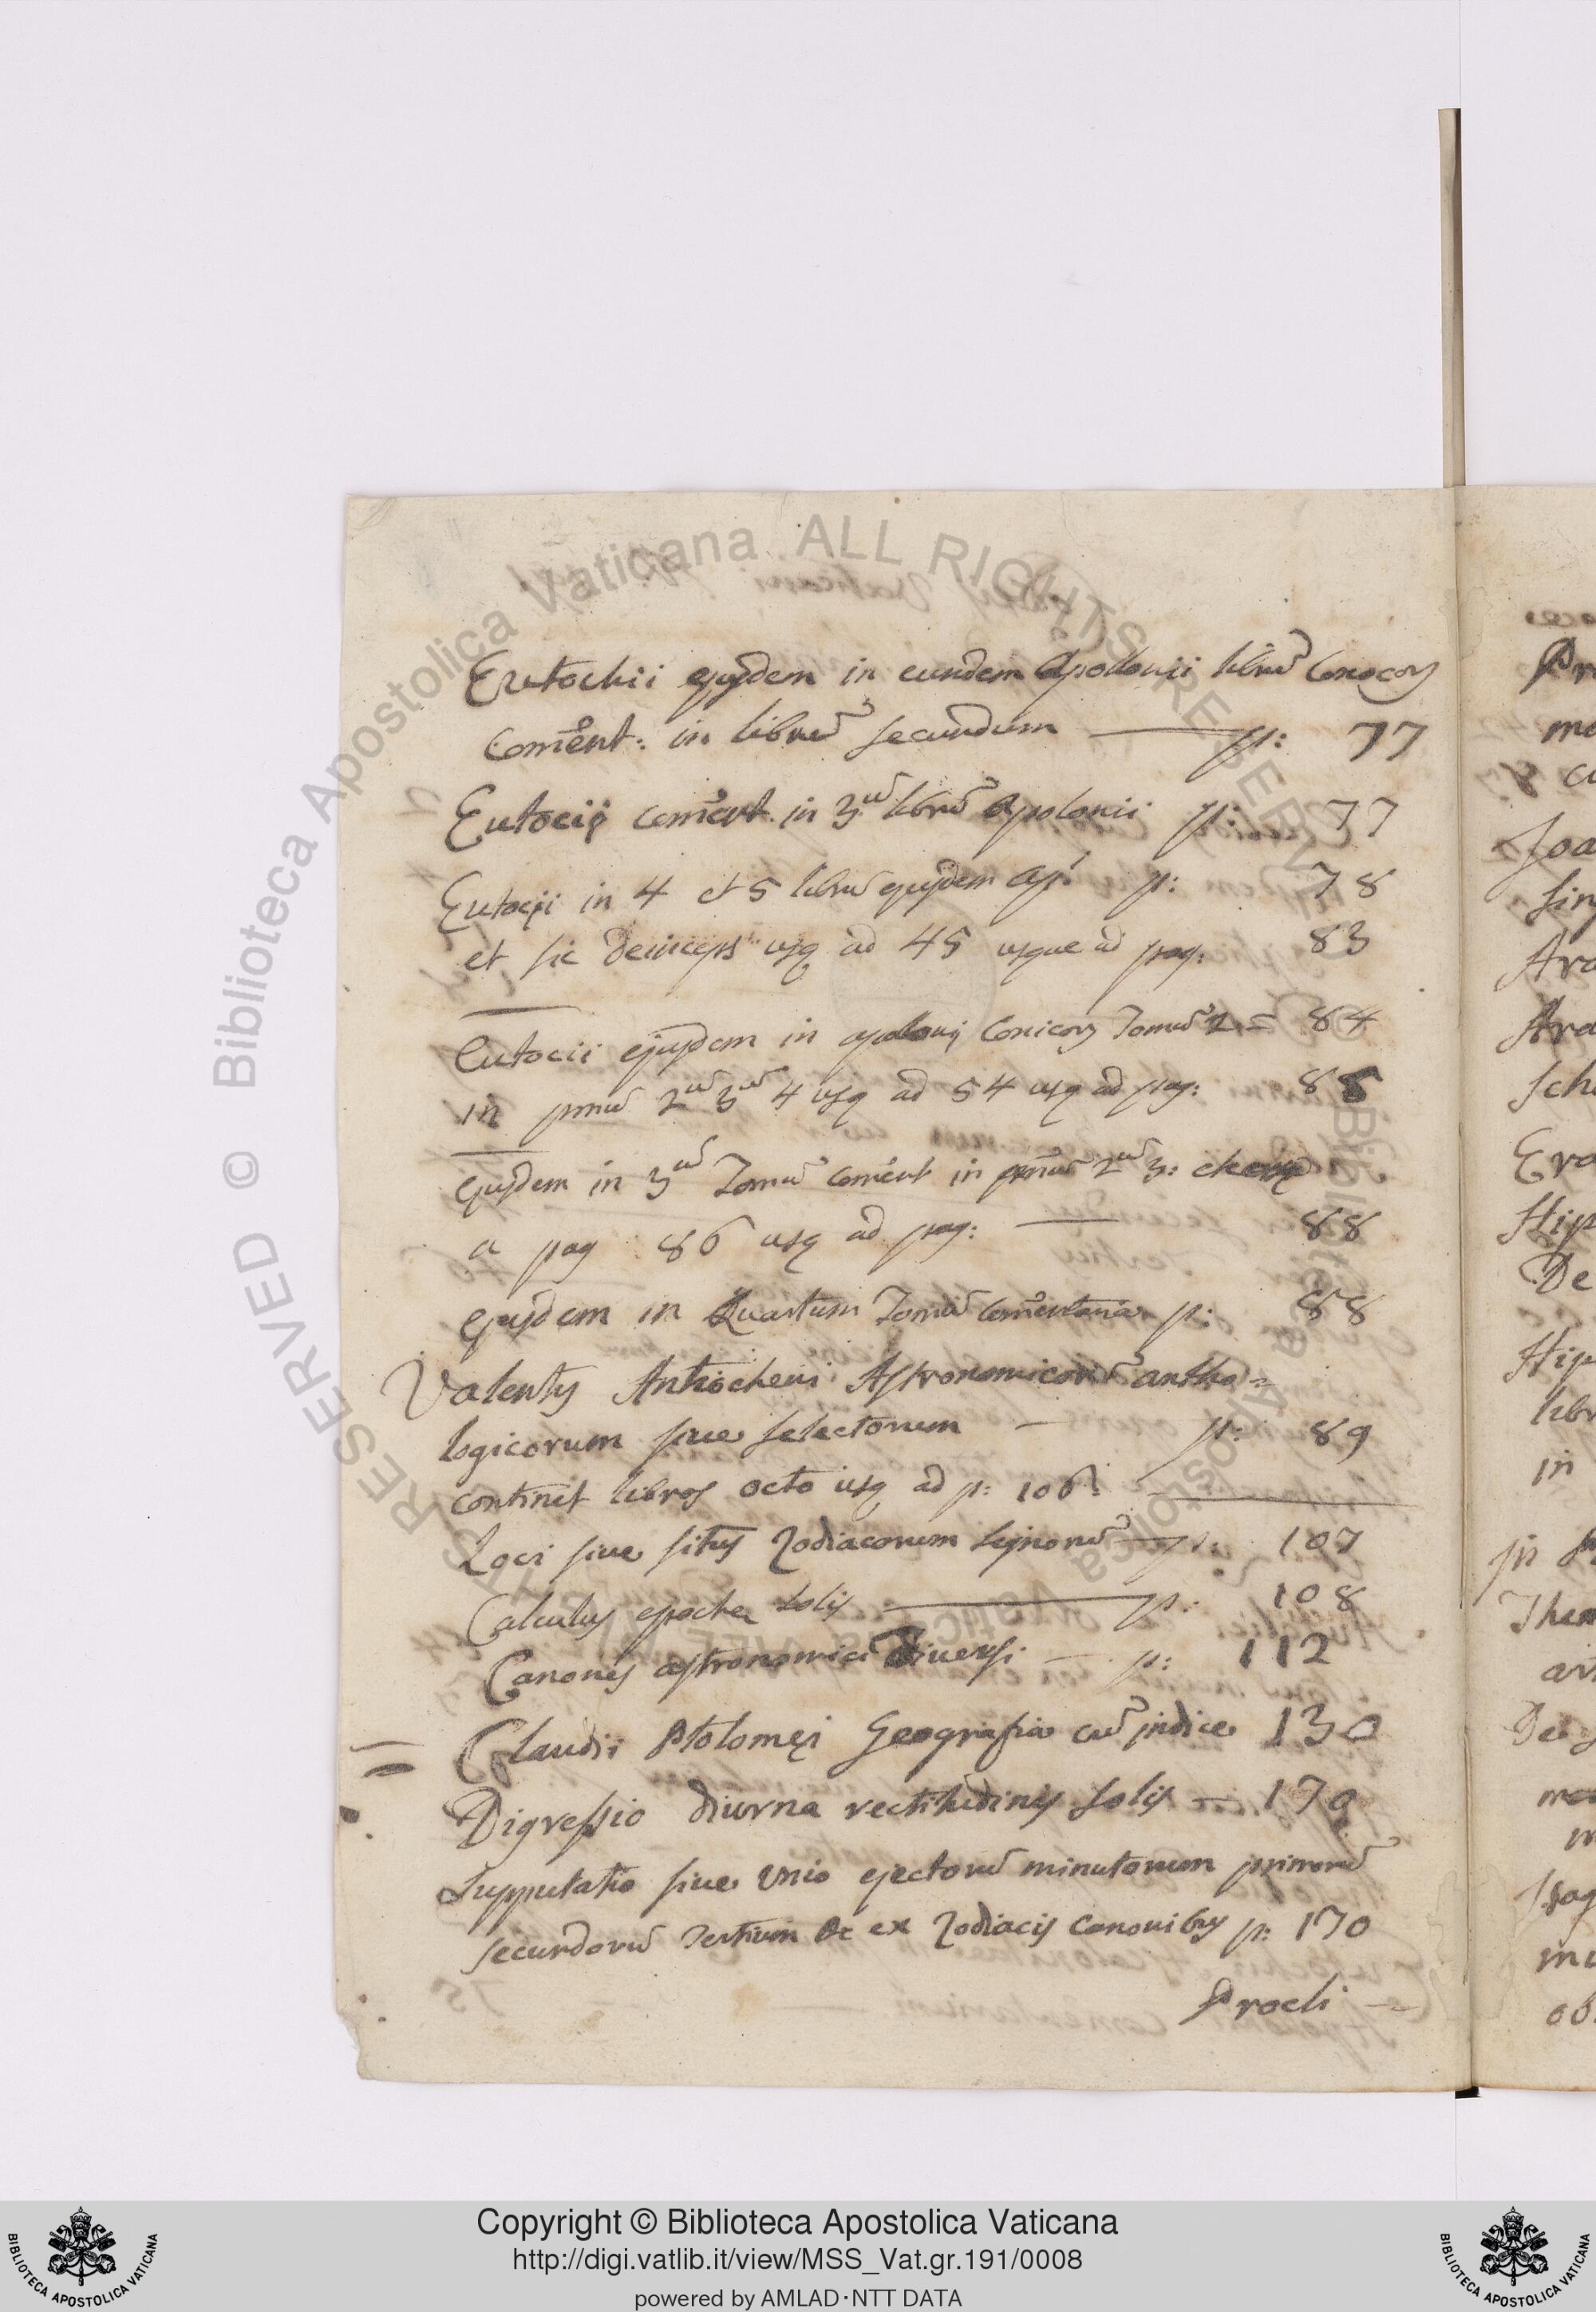 Eutochii ejusdem in eundem Apollonii librũ Conocorꝫ
Coment: in librũ secundum p: 77
Eutocii coment. in 3ũ librũ Apolonii p: 77
Eutocii in 4 et 5 librũ ejusdem Ap: p: 78
et sic deinceps usq ad 45 usque ad pag: 83
Eutocii ejusdem in apolonij Conicorꝫ Tomũ 2 = 84
in pmũ 2ũ 3ũ 4 usq ad 54 usq ad pag: 85
Ejusdem in 3ũ Tomũ coment in pmũ 2ũ 3:
a pag: 86 usq ad pag: 88
Ejusdem in Quartum Tomũ comentaria p: 88
Valentis Antiocheni Astronomicorũ antho=
logicorum siue selectorum — p: 89
continet libros octo usq ad p: 106:
Loci siue situs Zodiacorum signorũ — p: 107
Calculus epochæ solis p: 108
Canones astronomici Diuersi — p: 112
Claudii Ptolomęi Geografia cũ jndice 130
Digressio diurna rectitudinis solis — 170
Supputatio siue Vnio ejectorũ minutorum primorũ
secundorũ tertium &c ex Zodiacis Canonibus p: 170
Procli —
Pr
Joa
Ara
Ara
Sch
Era
Hip
De
Hip
libr
in
Theo
Biblioteca Apostolica Vaticana ALL RIGHTS RESERVED ©
Copyright © Biblioteca Apostolica Vaticana
http://digi.vatlib.it/view/MSS_Vat.gr.191/0008
powered by AMLAD·NTT DATA
BIBLIOTECA APOSTOLICA VATICANA
BIBLIOTECA APOSTOLICA VATICANA